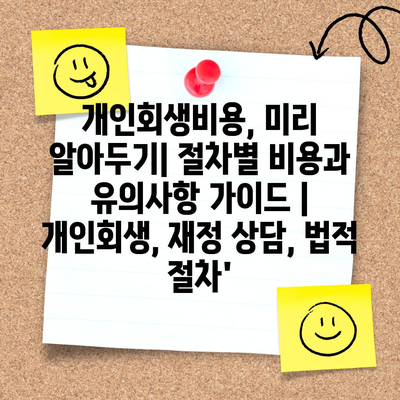 개인회생비용, 미리
알아두기| 절차별 비용과
유의사항 가이드 |
개인회생, 재정 상담, 법적
절차'